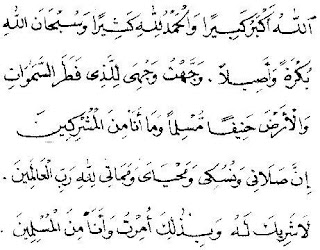 اَللهُ اَكْبَرُ كَبِيرًا وَالْحَمْدُ لِلّٰهِ كَثِيْرًا وَسُبْحَانَ اللهِ
بُكْرَةً وَأَصِيلاً . وَجَّهْتُ وَجْهِيَ لِلَّذِى فَطَرَ السَّمٰوَاتِ
وَالْأَرْضَ حَنِيفًا مُسْلِمًا وَمَا أَنَا مِنَ الْمُشْرِكِيْنَ
إِنَّ صَلَاتِى وَنُسُكِى وَمَحْيَاىَ وَمَمَاتِى لِلّٰهِ رَبِّ الْعَالَمِيْنَ .
لَاشَرِيْكَ لَهُ وَبِذٰلِكَ أُمِرْتُ وَأَنَا مِنَ الْمُسْلِمِيْنَ .